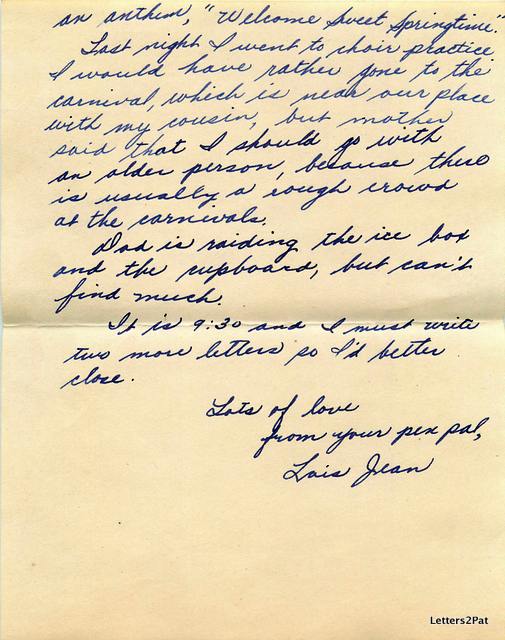 an anthem, "Welcome Sweet Springtime."
Last night I went to choir practice
I would have rather gone to the
carnival, which is near our place
with my cousin, but mother
said that I should go with
an older person, because there
is usually a rough crowd
at the carnivals.
Dad is raiding the ice box
and the cupboard, but can't
find much.
It is 9:30 and I must write
two more letters so I'd better
close.
Lots of love
from your pen pal,
Lois Jean
Letters2Pat